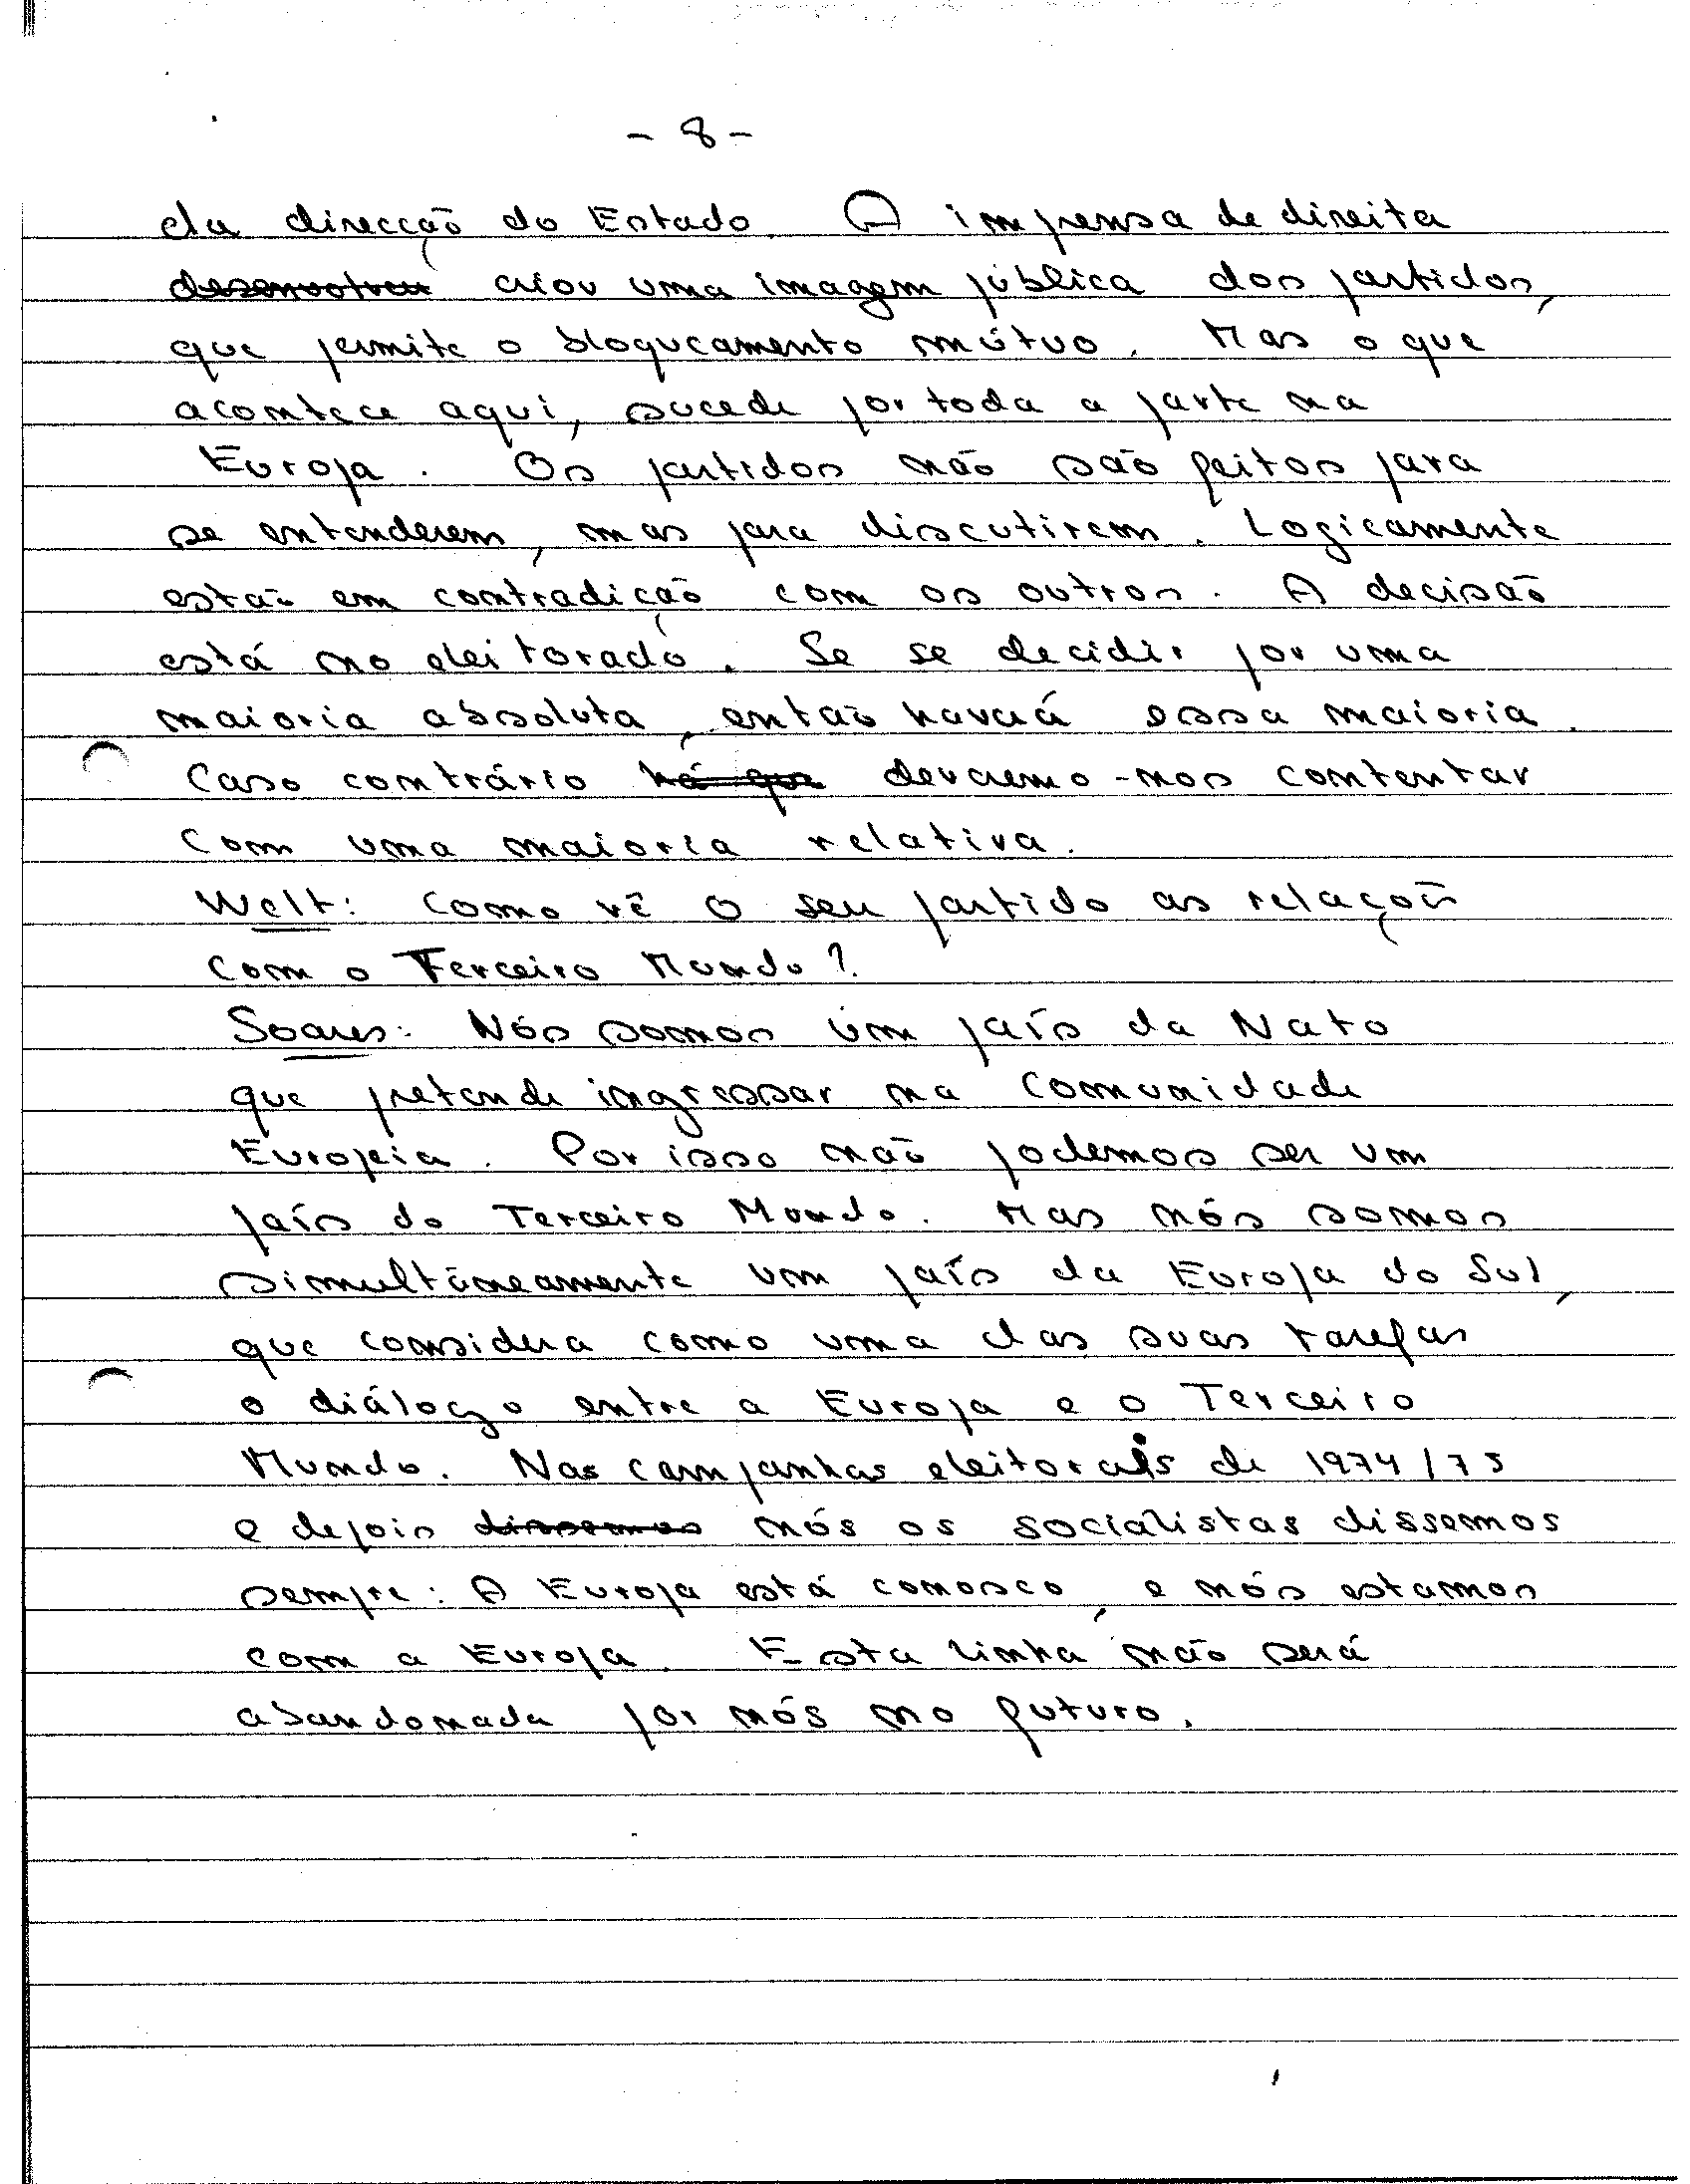 - 8 -
da direcção do Estado. A imprensa de direita
desenvolveu criou uma imagem pública dos partidos,
que permite o bloqueamento mútuo. Mas o que
acontece aqui, sucede por toda a parte na
Europa. Os partidos não são feitos para
se entenderem, mas para discutirem. Logicamente
estão em contradição com os outros. A decisão
está no eleitorado. Se se decidir por uma
maioria absoluta, então haverá essa maioria.
Caso contrário há que deveremo-nos contentar
com uma maioria relativa.
Welt: Como vê o seu partido as relações
com o Terceiro Mundo?
Soares: Nós somos um país da Nato
que pretende ingressar na Comunidade
Europeia. Por isso não podemos ser um
país do Terceiro Mundo. Mas nós somos
simultâneamente um país da Europa do Sul,
que considera como uma das suas tarefas
o diálogo entre a Europa e o Terceiro
Mundo. Nas campanhas eleitorais de 1974/75
e depois dissemos nós os socialistas dissemos
sempre: A Europa está conosco, e nós estamos
com a Europa. Esta linha não será
abandonada por nós no futuro.